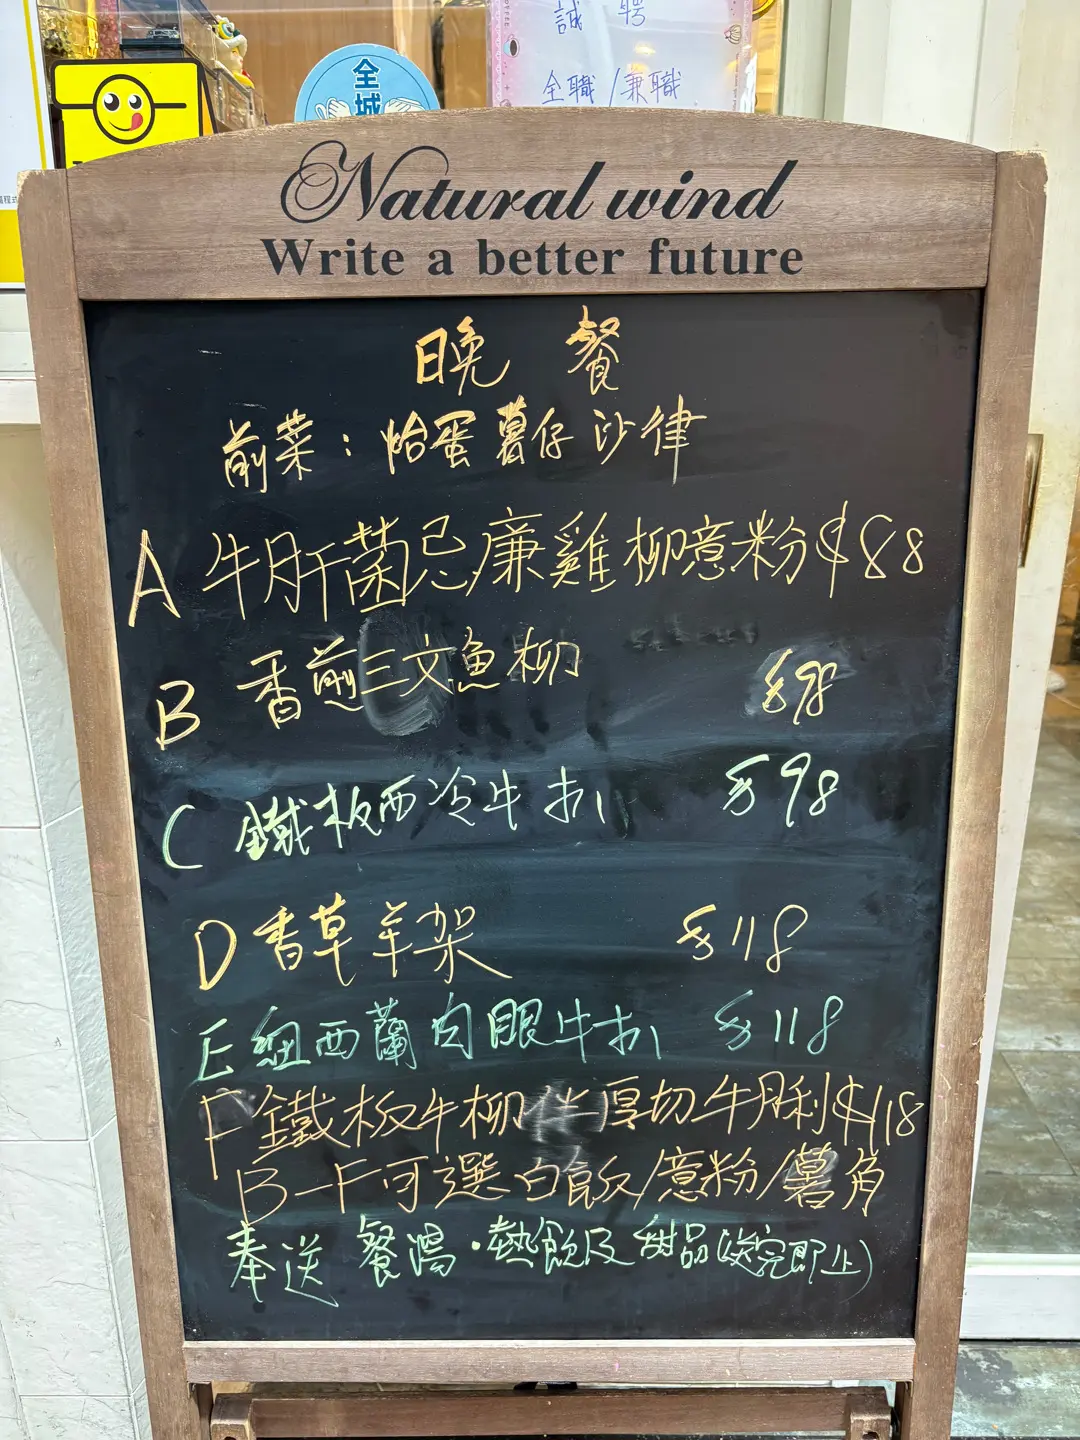 誠聘
全職/兼職
全城
Natural wind
Write a better future
晚餐
前菜：烚蛋薯仔沙律
A 牛肝菌忌廉雞柳意粉 $88
B 香煎三文魚柳 $98
C 鐵板西冷牛扒 $98
D 香草羊架 $118
E 紐西蘭肉眼牛扒 $118
F 鐵板牛柳伴厚切牛脷 $118
B-F可選白飯/意粉/薯角
奉送 餐湯·熱飲及甜品(送完即止)